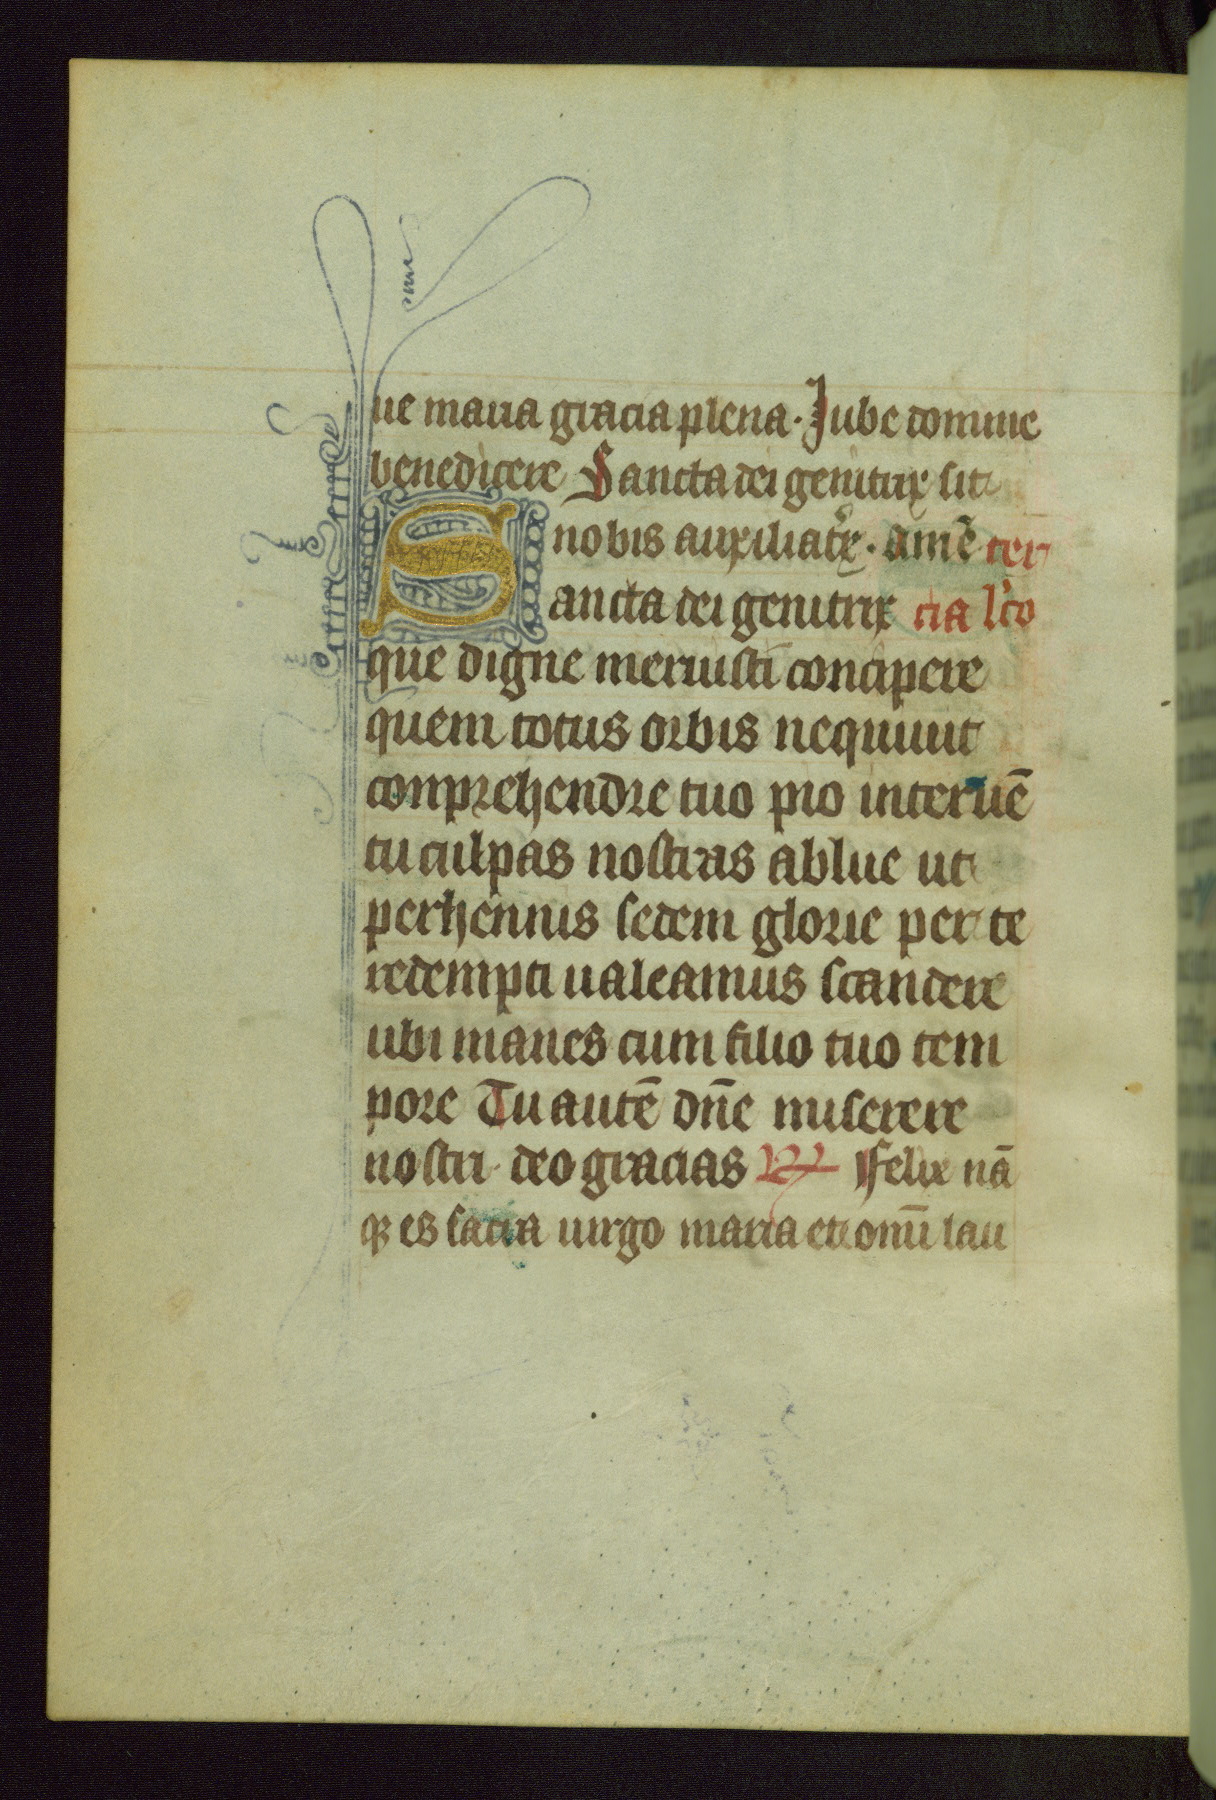 ue maria gracia plena. Jube domine
benedicere Sancta dei genitrix sit
nobis auxiliatrx. amē ter
Sancta dei genitrix cia lc̄o
que digne meruisti concipere
quem totus orbis nequiuit
conprehendre tuo pio interuē
tu culpas nostras ablue ut
perhennis sedem glorie per te
redempti ualeamus scandere
ubi manes cum filio tuo tem
pore Tu autē dn̄e miserere
nostri deo gracias R felix nā
qꝫ es sacra uirgo maria et omī lau